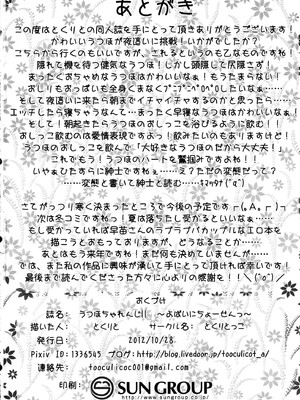 あとがき
この度はとくりとの同人誌を手にとって頂きありがとうございます!
かわいいうつほが夜這いに挑戦!いかがでしたか?
こちらから行くのもいいですが、こそれるというのも乙なものですね!
隠れて機を待つ健気なうつほ!しかし頭隠して尻隠さず!
まったくおちゃめなうつほはかわいいなぁ!もうたまらない!
そして夜這いに来たら朝までイチャイチャするのかと思ったら……
エッチしたら寝ちゃうなんて…まったく早寝なうつほはかわいいなぁ!
そして!朝起きたらうつほのおしっこを浴びるように飲む!!
おしっこ飲むのは愛情表現ですよ!飲みたいのもありますけど!
うつほのおしっこを飲んで「大好きなうつほのゼロから大丈夫!」
これでもう!うつほのハートを鷲掴みですよね!!
いやぁひたすらに紳士ですねぇ…え?ただの変態だって?
……変態と書いて紳士と読む……
さてがっつり寒く決まったところで今後の予定です
次は冬コミですね!夏は落ちたし受かるといいなぁ…
もし受かっていれば早苗さんのラブラブバカップルなエロ本を
描こうとおもっておりますが、どうなることか……
あとはもう来年ですね!まだ何も決めていませんが……
では、また私の作品に興味が湧いて手にとって頂ければ幸いです!
最後まで読んでくださった方々に心よりの感謝を!!
おくづけ
誌名: うつほちゃれんじ!! ~よばいにちょーせんっ~
描いた人: とくりと サークル名: とくりとっこ
発行日: 2012/10/28
Pixiv ID:1336545 ブログ:http://blog.livedoor.jp/tooculicot_a/
連絡先: tooculicoc001@gmail.com
印刷: SUN GROUP